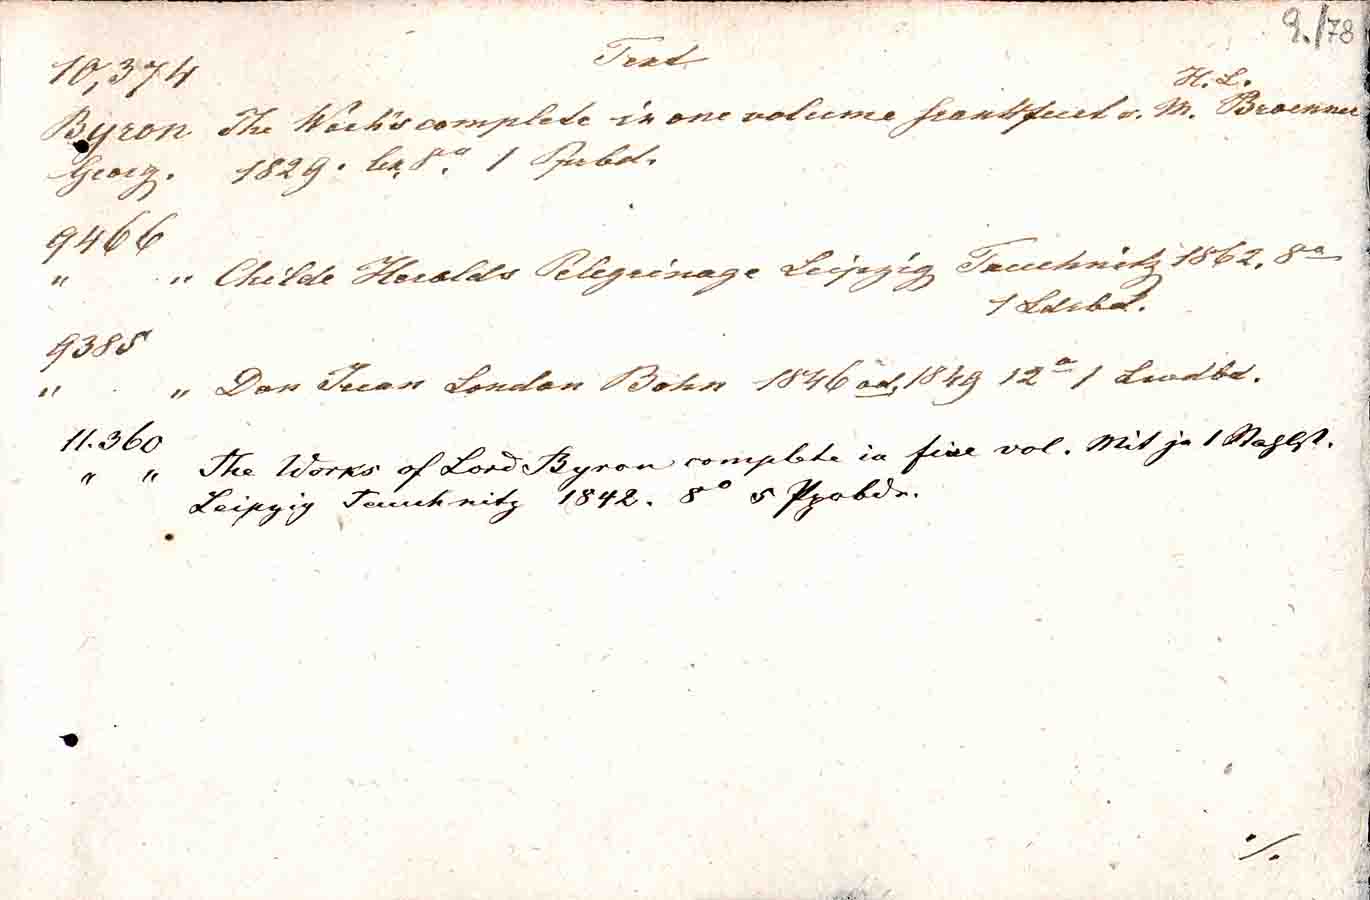 9./78
Text
10,374
H. L.
Byron The Work's complete in one volume Frankfurt a. M. Broenner
Georg. 1829. lex. 8°. 1 Ppbd.
9466
" " Childe Harolds Pelegrinage Leipzig Tauchnitz 1862. 8°
1 Ldrbd.
9385
" " Don Juan London Bohn 1846 od. 1849 12° 1 Lwdbd.
11.360
" " The Works of Lord Byron complete in five vol. Mit je 1
Leipzig Tauchnitz 1842. 8° 5
./.